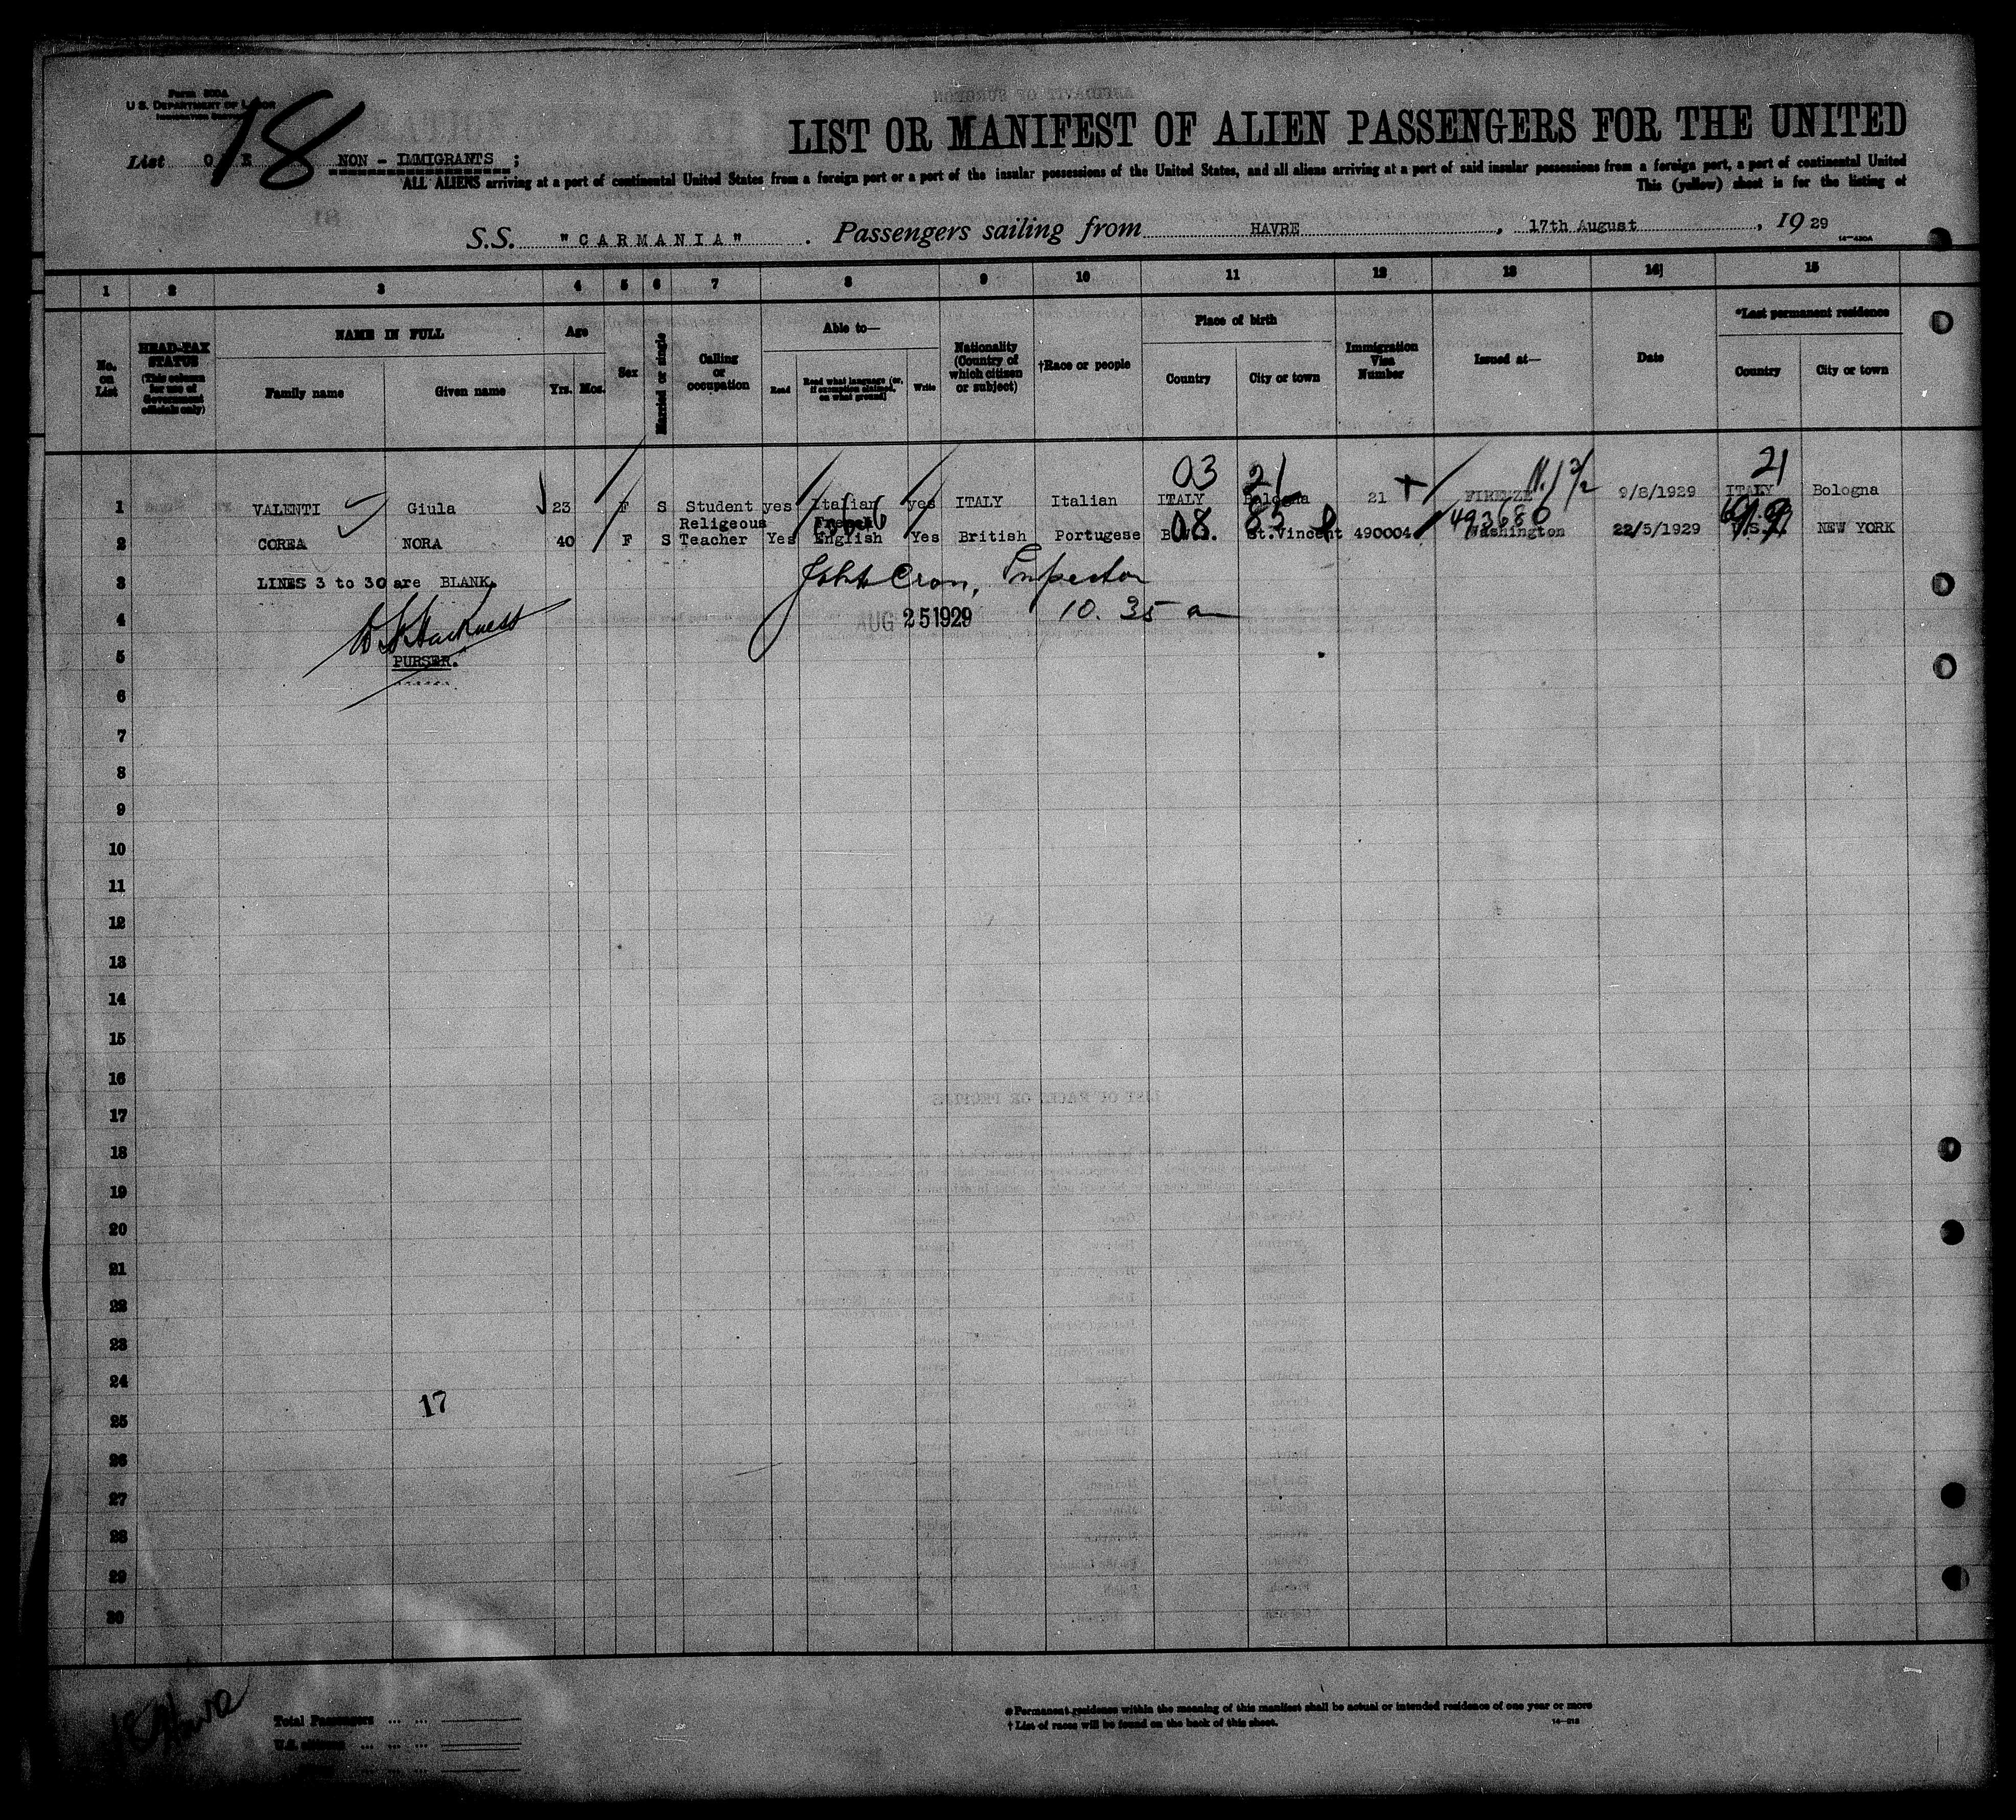 Form 500A
U. S. DEPARTMENT OF LABOR
IMMIGRATION SERVICE
18
List O E NON - IMMIGRANTS ;
LIST OR MANIFEST OF ALIEN PASSENGERS FOR THE UNITED
ALL ALIENS arriving at a port of continental United States from a foreign port or a port of the insular possessions of the United States, and all aliens arriving at a port of said insular possessions from a foreign port, a port of continental United
This (yellow) sheet is for the listing of
S.S. "CARMANIA" . Passengers sailing from HAVRE , 17th August , 19 29
14-430A
1 2 3 4 5 6 7 8 9 10 11 12 13 14 15
No. on List
HEAD-TAX STATUS (This column for use of Government officials only)
NAME IN FULL
Family name Given name
Age
Yrs. Mos.
Sex
Married or single
Calling or occupation
Able to—
Read Read what language (or, if exemption claimed, on what ground) Write
Nationality (Country of which citizen or subject)
†Race or people
Place of birth
Country City or town
Immigration Visa Number
Issued at—
Date
*Last permanent residence
Country City or town
03 21 21
1 VALENTI Giula 23 F S Student yes Italian yes ITALY Italian ITALY Bologna 21 FIRENZE 9/8/1929 ITALY Bologna
Religeous French 08 85 493680
2 COREA NORA 40 F S Teacher Yes English Yes British Portugese B.W.I. St.Vincent 490004 Washington 22/5/1929 U.S.A. NEW YORK
3 LINES 3 to 30 are BLANK.
John Cron, Inspector
4 AUG 25 1929 10. 35 a
5 PURSER.
6
7
8
9
10
11
12
13
14
15
16
17
18
19
20
21
22
23
24
17
25
26
27
28
29
30
Total Passengers ... ...
U.S. citizens ... ... ...
* Permanent residence within the meaning of this manifest shall be actual or intended residence of one year or more
† List of races will be found on the back of this sheet.